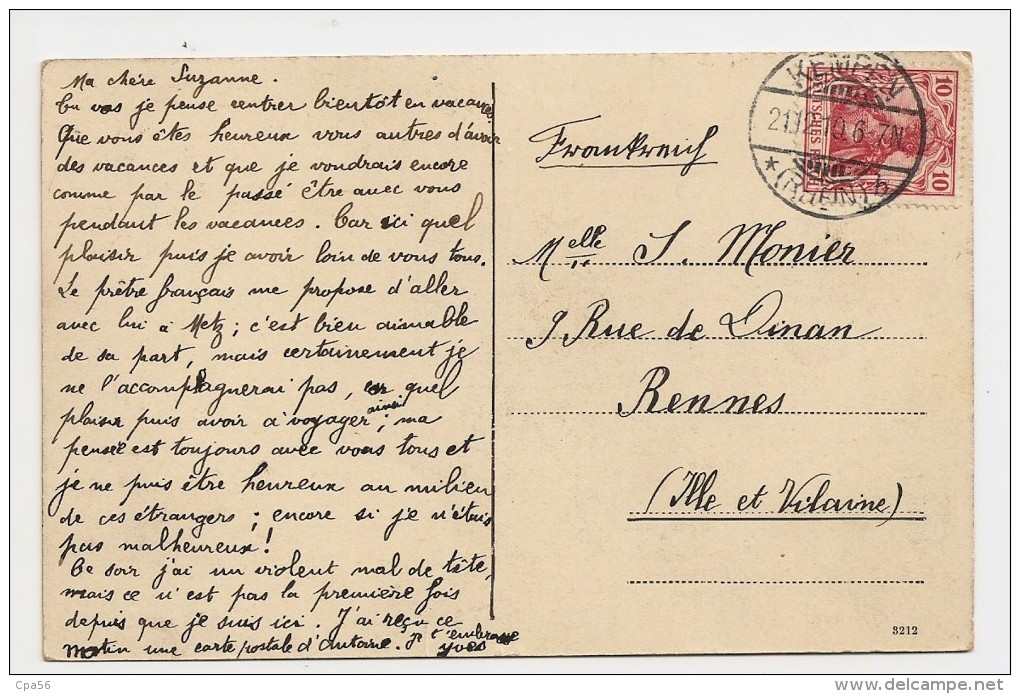 Ma chère Suzanne.
Tu vas je pense rentrer bientôt en vacance.
Que vous êtes heureux vous autres d'avoir
des vacances et que je voudrais encore
comme par le passé être avec vous
pendant les vacances. Car ici quel
plaisir puis je avoir loin de vous tous.
Le prêtre français me propose d'aller
avec lui à Metz; c'est bien aimable
de sa part, mais certainement je
ne l'accompagnerai pas, quel
plaisir puis avoir à voyager ainsi; ma
pensée est toujours avec vous tous et
je ne puis être heureux au milieu
de ces étrangers; encore si je n'étais
pas malheureux!
Ce soir j'ai un violent mal de tête,
mais ce n'est pas la première fois
depuis que je suis ici. J'ai reçu ce
matin une carte postale d'Antoine. Je t'embrasse
Yves
Frankreich
Melle S. Monier
9 Rue de Dinan
Rennes
(Ille et Vilaine)
KEMPEN
21.12.10.6-7N
* (RHEIN) b
DEUTSCHES REICH
10
10
3212
Cpa56
www.delcampe.net